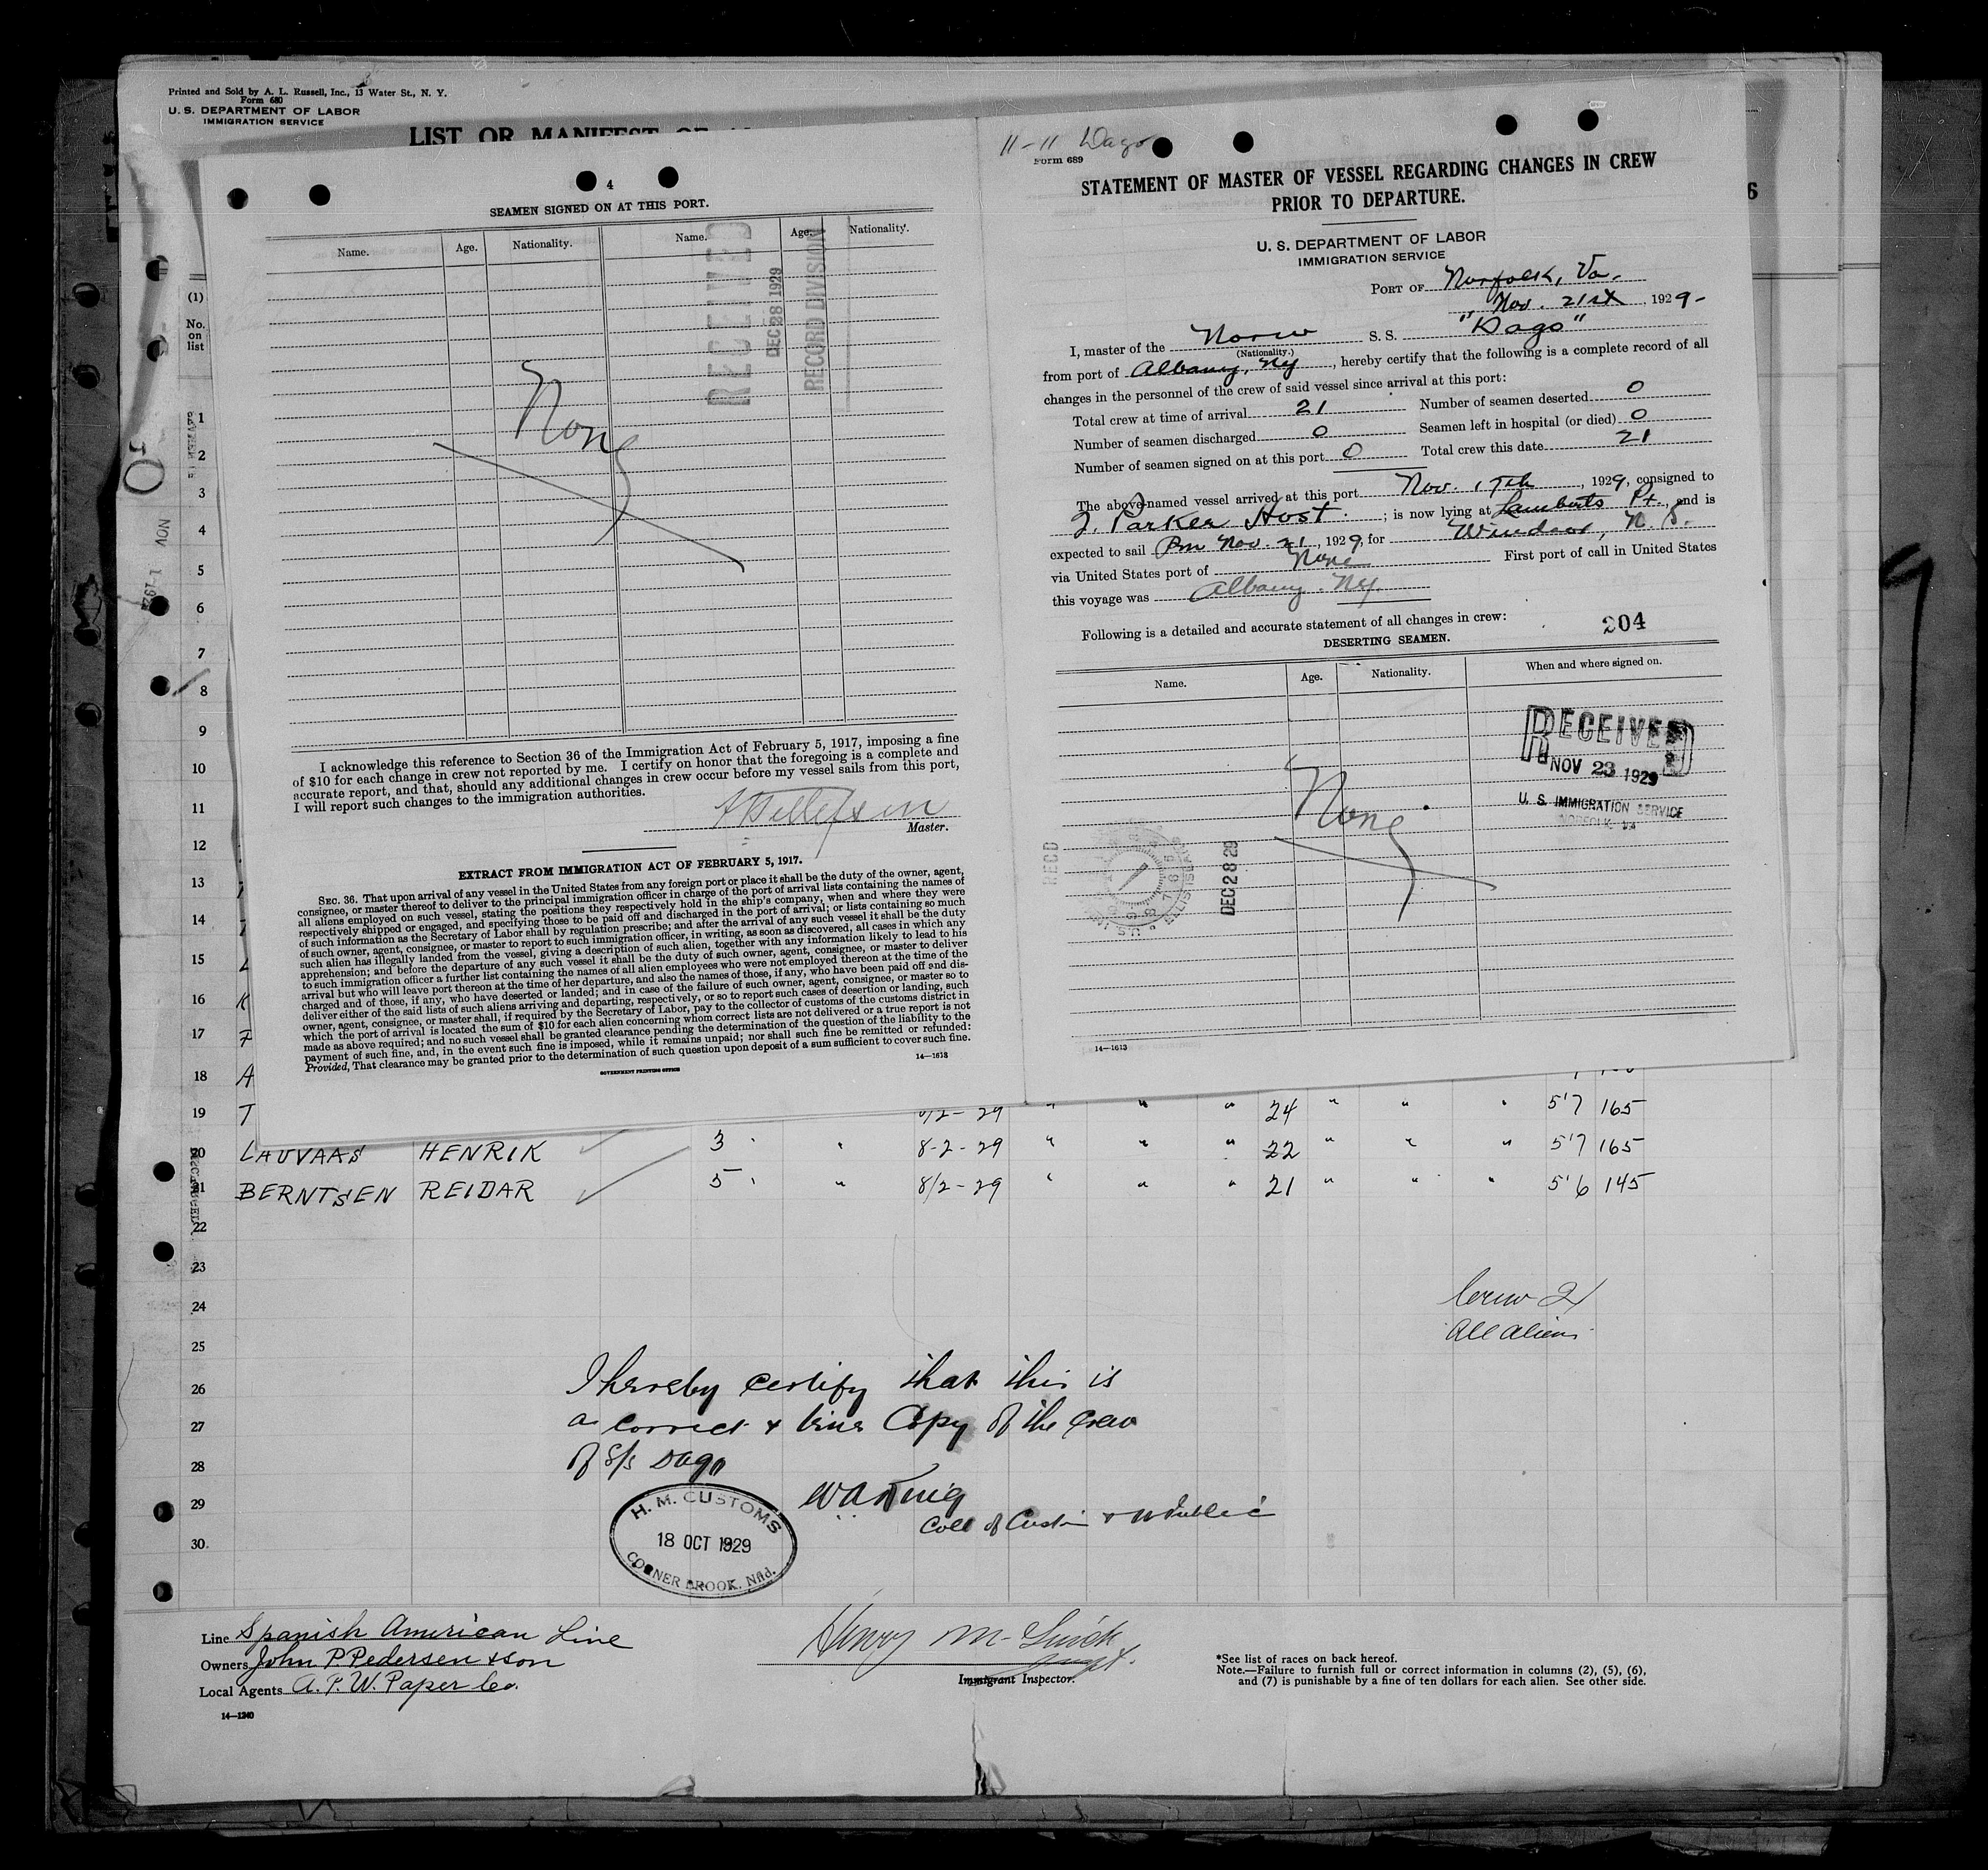 Printed and Sold by A. L. Russell, Inc., 13 Water St., N. Y.
Form 680
U. S. DEPARTMENT OF LABOR
IMMIGRATION SERVICE
LIST OR MANIFEST OF
4
SEAMEN SIGNED ON AT THIS PORT.
Name. Age. Nationality. Name. Age. Nationality.
RECEIVED
DEC 28 1929
RECORD DIVISION
None
I acknowledge this reference to Section 36 of the Immigration Act of February 5, 1917, imposing a fine
of $10 for each change in crew not reported by me. I certify on honor that the foregoing is a complete and
accurate report, and that, should any additional changes in crew occur before my vessel sails from this port,
I will report such changes to the immigration authorities.
Master.
EXTRACT FROM IMMIGRATION ACT OF FEBRUARY 5, 1917.
SEC. 36. That upon arrival of any vessel in the United States from any foreign port or place it shall be the duty of the owner, agent,
consignee, or master thereof to deliver to the principal immigration officer in charge of the port of arrival lists containing the names of
all aliens employed on such vessel, stating the positions they respectively hold in the ship's company, when and where they were
respectively shipped or engaged, and specifying those to be paid off and discharged in the port of arrival; or lists containing so much
of such information as the Secretary of Labor shall by regulation prescribe; and after the arrival of any such vessel it shall be the duty
of such owner, agent, consignee, or master to report to such immigration officer, in writing, as soon as discovered, all cases in which any
such alien has illegally landed from the vessel, giving a description of such alien, together with any information likely to lead to his
apprehension; and before the departure of any such vessel it shall be the duty of such owner, agent, consignee, or master to deliver
to such immigration officer a further list containing the names of all alien employees who were not employed thereon at the time of the
arrival but who will leave port thereon at the time of her departure, and also the names of those, if any, who have been paid off and dis-
charged and of those, if any, who have deserted or landed; and in case of the failure of such owner, agent, consignee, or master so to
deliver either of the said lists of such aliens arriving and departing, respectively, or so to report such cases of desertion or landing, such
owner, agent, consignee, or master shall, if required by the Secretary of Labor, pay to the collector of customs of the customs district in
which the port of arrival is located the sum of $10 for each alien concerning whom correct lists are not delivered or a true report is not
made as above required; and no such vessel shall be granted clearance pending the determination of the question of the liability to the
payment of such fine, and, in the event such fine is imposed, while it remains unpaid; nor shall such fine be remitted or refunded:
Provided, That clearance may be granted prior to the determination of such question upon deposit of a sum sufficient to cover such fine.
14—1613
GOVERNMENT PRINTING OFFICE
11-11 Dago
Form 689
STATEMENT OF MASTER OF VESSEL REGARDING CHANGES IN CREW
PRIOR TO DEPARTURE.
U. S. DEPARTMENT OF LABOR
IMMIGRATION SERVICE
PORT OF Norfolk, Va.
Nov. 21st 1929-
I, master of the Norw S. S. "Dago"
(Nationality.)
from port of Albany, NY, hereby certify that the following is a complete record of all
changes in the personnel of the crew of said vessel since arrival at this port:
Total crew at time of arrival 21 Number of seamen deserted 0
Number of seamen discharged 0 Seamen left in hospital (or died) 0
Number of seamen signed on at this port 0 Total crew this date 21
The above-named vessel arrived at this port Nov. 17th, 1929, consigned to
T. Parker Host; is now lying at Lamberts Pt., and is
expected to sail Pm Nov. 21, 1929, for Windsor, N. S.
via United States port of None First port of call in United States
this voyage was Albany. NY.
Following is a detailed and accurate statement of all changes in crew:
204
DESERTING SEAMEN.
Name. Age. Nationality. When and where signed on.
RECEIVED
NOV 23 1929
U. S. IMMIGRATION SERVICE
NORFOLK, VA
None
RECD
DEC 28 29
14—1613
(1)
No.
on
list
1
2
3
4
5
6
7
8
9
10
11
12
13
14
15
16 K
17
18 A
19 T 24 5'7 165
20 LAUVAAS HENRIK 3 " " 8-2-29 " " " 22 " " " 5'7 165
21 BERNTSEN REIDAR 5 " " 8/2-29 " " " 21 " " " 5'6 145
22
23
24
25
26
27
28
29
30.
Crew 21
All aliens
I hereby certify that this is
a correct & true Copy of the crew
of S/s Dago
H. M. CUSTOMS
18 OCT 1929
CORNER BROOK, Nfld.
Line Spanish American Line
Owners John P. Pedersen & son
Local Agents A. P. W. Paper Co.
14—1240
Immigrant Inspector.
*See list of races on back hereof.
Note.—Failure to furnish full or correct information in columns (2), (5), (6),
and (7) is punishable by a fine of ten dollars for each alien. See other side.